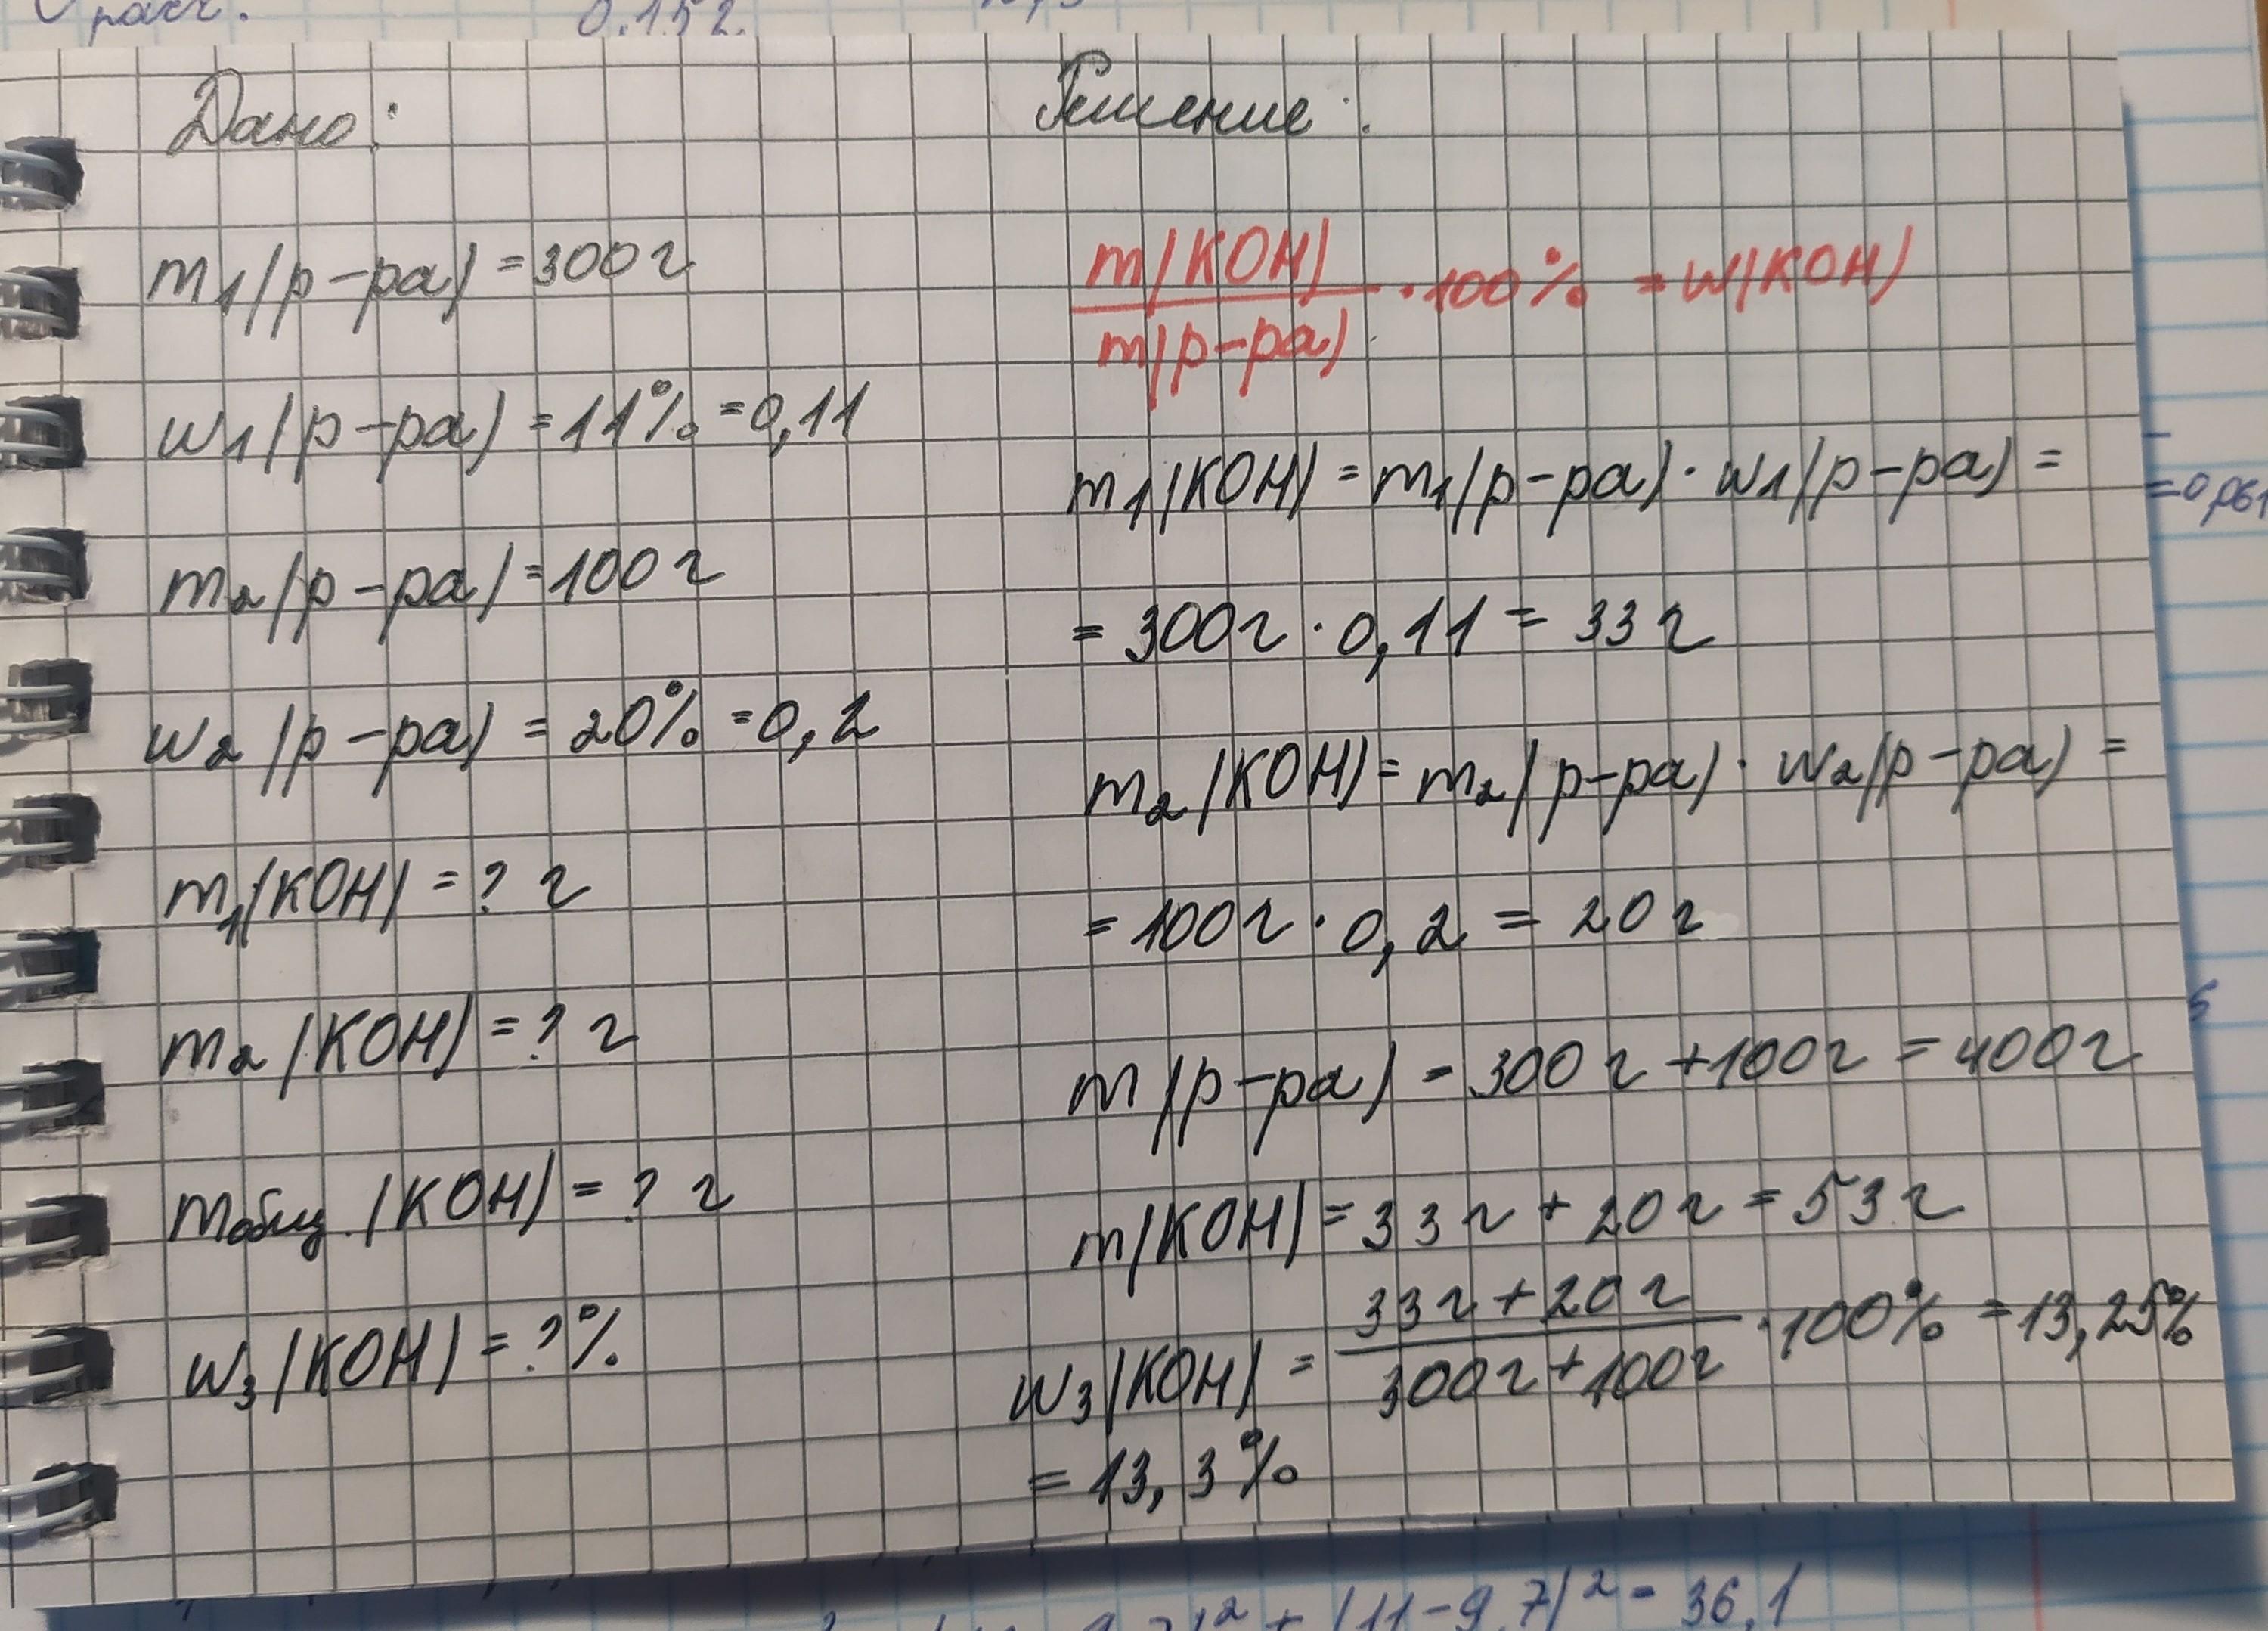 расч. 0.152.
Дано:
m₁(р-ра) = 300 г
w₁(р-ра) = 11% = 0,11
m₂(р-ра) = 100 г
w₂(р-ра) = 20% = 0,2
m₁(KOH) = ? г
m₂(KOH) = ? г
mобщ.(KOH) = ? г
w₃(KOH) = ?%
Решение:
m(KOH)
m(р-ра) · 100% = w(KOH)
m₁(KOH) = m₁(р-ра) · w₁(р-ра) =
= 300 г · 0,11 = 33 г
m₂(KOH) = m₂(р-ра) · w₂(р-ра) =
= 100 г · 0,2 = 20 г
m(р-ра) = 300 г + 100 г = 400 г
m(KOH) = 33 г + 20 г = 53 г
w₃(KOH) = 33 г + 20 г
300 г + 100 г · 100% = 13,25%
= 13,3%
= 0,061
5
² + (11-9,7)² = 36,1